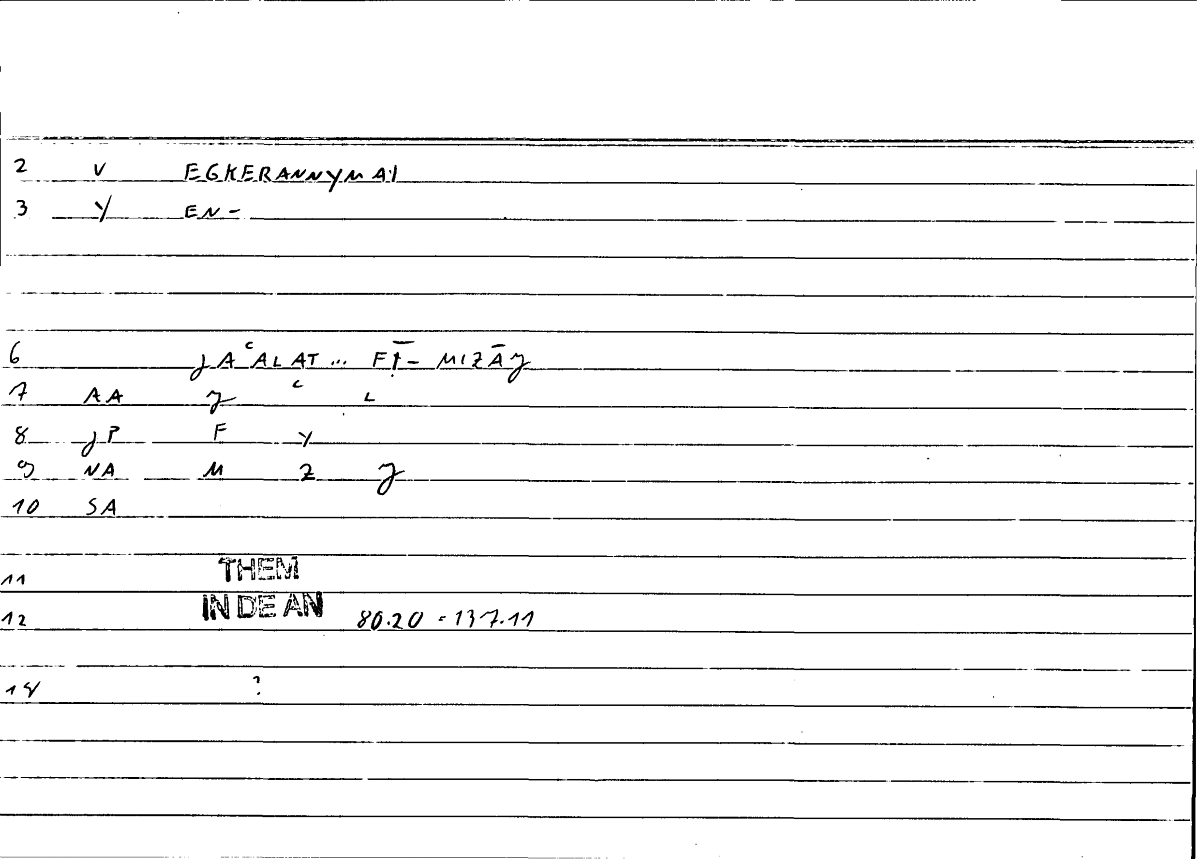 2 V EGKERANNYMAI
3 Y EN-
6 JAʿALAT... FĪ- MIZĀJ
7 AA J ʿ L
8 JP F Y
9 NA M Z J
10 SA
11 THEM
12 IN DE AN 80.20 = 137.11
14 ?